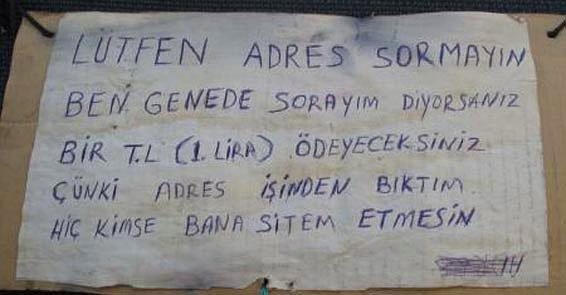 LÜTFEN ADRES SORMAYIN
BEN GENEDE SORAYIM DİYORSANIZ
BİR T.L (1.LİRA) ÖDEYECEKSİNİZ
ÇÜNKİ ADRES İŞİNDEN BIKTIM
HİÇ KİMSE BANA SİTEM ETMESİN